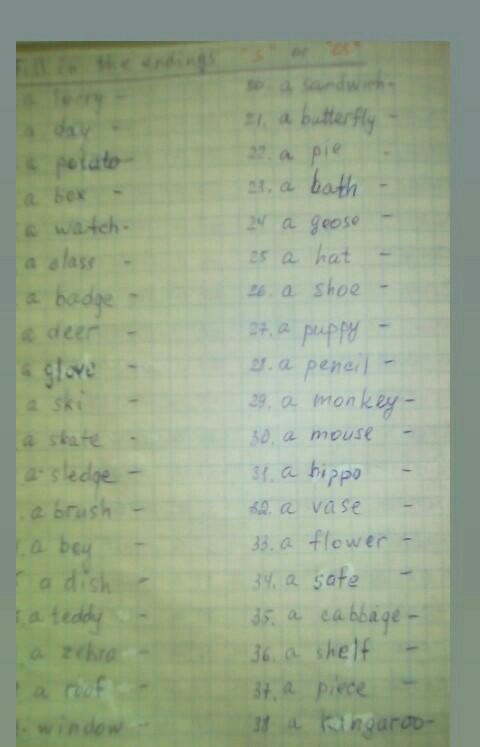 fill in the endings "s" or "es"
a lorry -
a day -
a potato-
a box -
a watch-
a glass -
a badge -
a deer -
a glove -
a ski -
a skate -
a sledge -
a brush -
a boy -
a dish -
a teddy -
a zebra -
a roof -
window -
20. a sandwich-
21. a butterfly -
22. a pie -
23. a bath -
24 a goose -
25 a hat -
26. a shoe -
27. a puppy -
28. a pencil -
29. a monkey-
30. a mouse -
31. a hippo -
32. a vase -
33. a flower -
34. a safe -
35. a cabbage-
36. a shelf -
37. a piece -
38 a kangaroo-